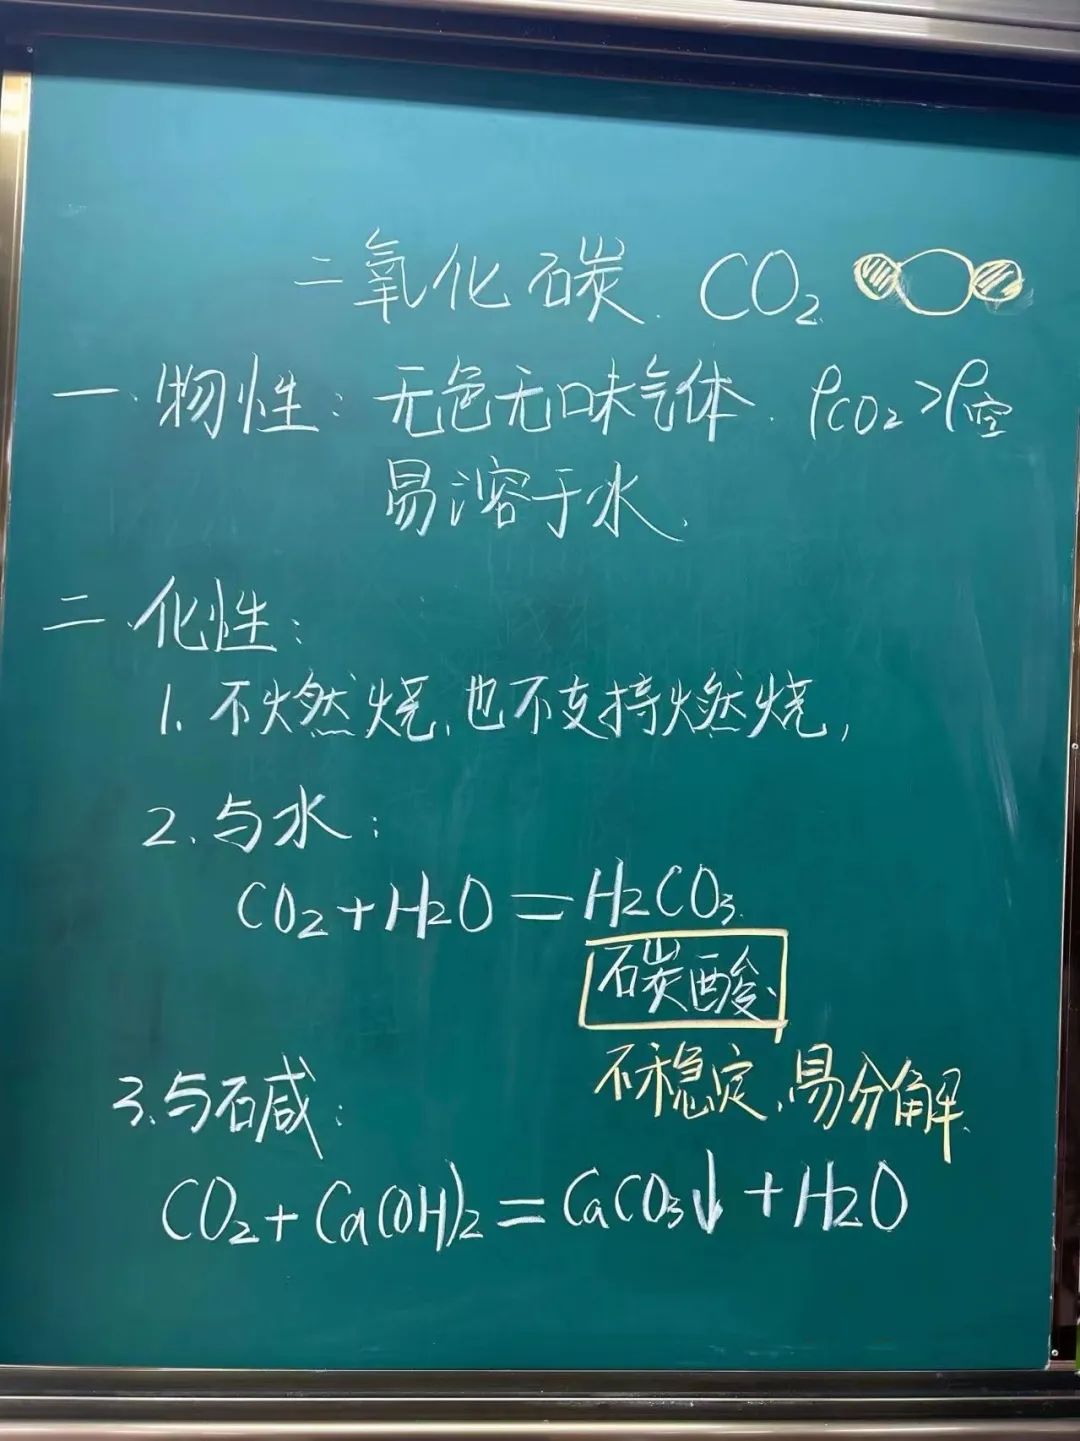 二氧化碳. CO₂
一.物性: 无色无味气体. ρCO₂>ρ空
易溶于水.
二.化性:
1.不燃烧,也不支持燃烧,
2.与水:
CO₂+H₂O=H₂CO₃.
碳酸.
不稳定,易分解.
3.与碱:
CO₂+Ca(OH)₂=CaCO₃↓+H₂O